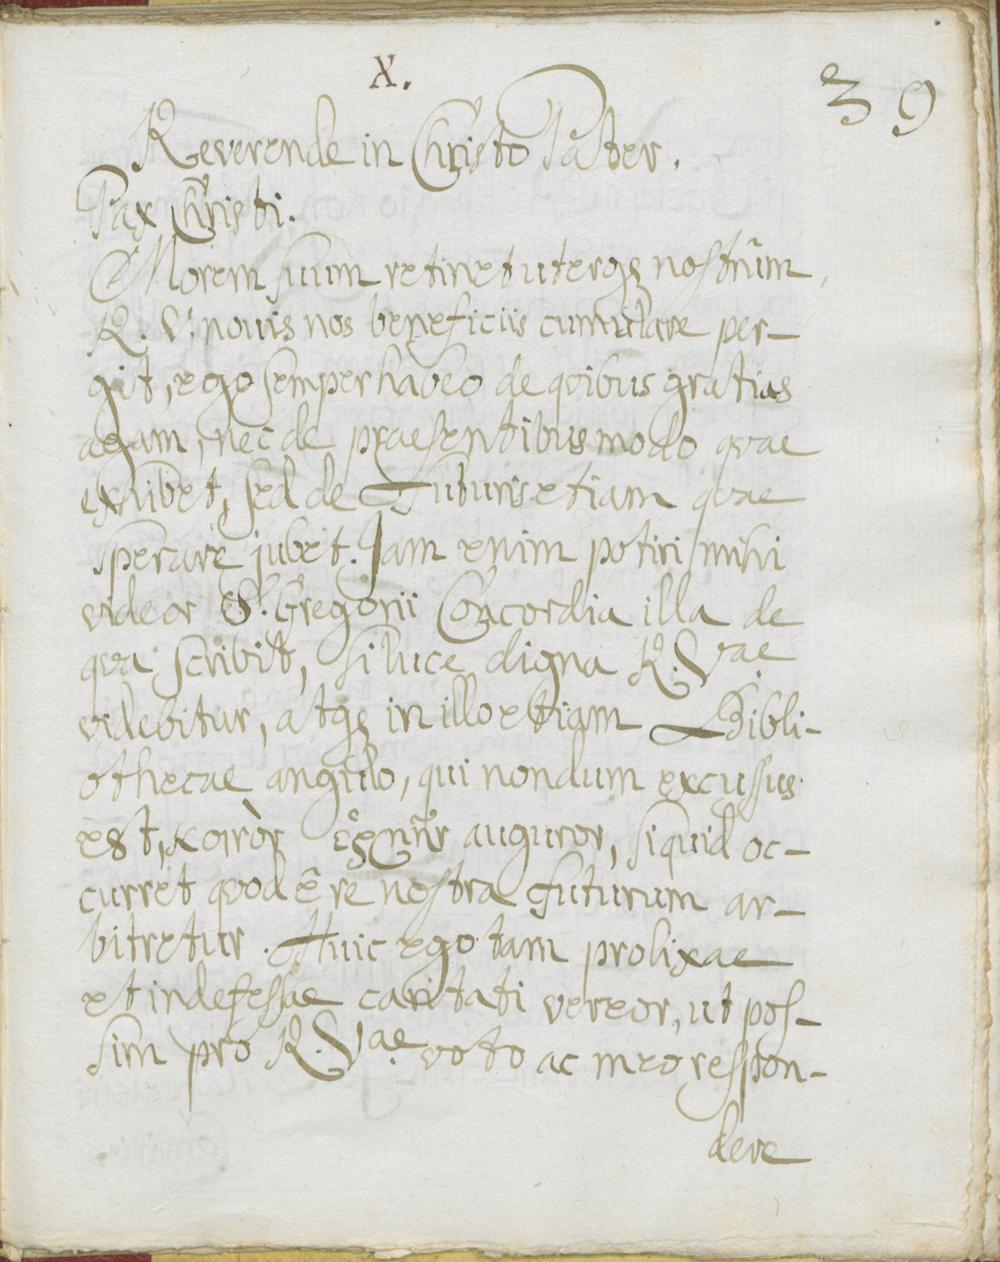 X.
39
Reverende in Christo Pater.
Pax Christi.
Morem suum retinet uterqȝ nostrûm
R. V. novis nos beneficiis cumulare per-
git, ego semper habeo de qvibus gratias
agam, nec de praesentibus modo qvae
exhibet, sed de Futuris etiam qvae
sperare jubet. Jam enim potiri mihi
videor S. Gregorii Concordia illa de
qva scribit, si luce digna R. Vae
videbitur, atqȝ in illo etiam Bibli-
othecae angulo, qui nondum excussus
est, auguror, siquid oc-
curret qvod ê re nostra futurum ar-
bitretur. Huic ego tam prolixae
et indefessae caritati vereor, ut pos-
sim pro R. Vae voto ac meo respon-
dere